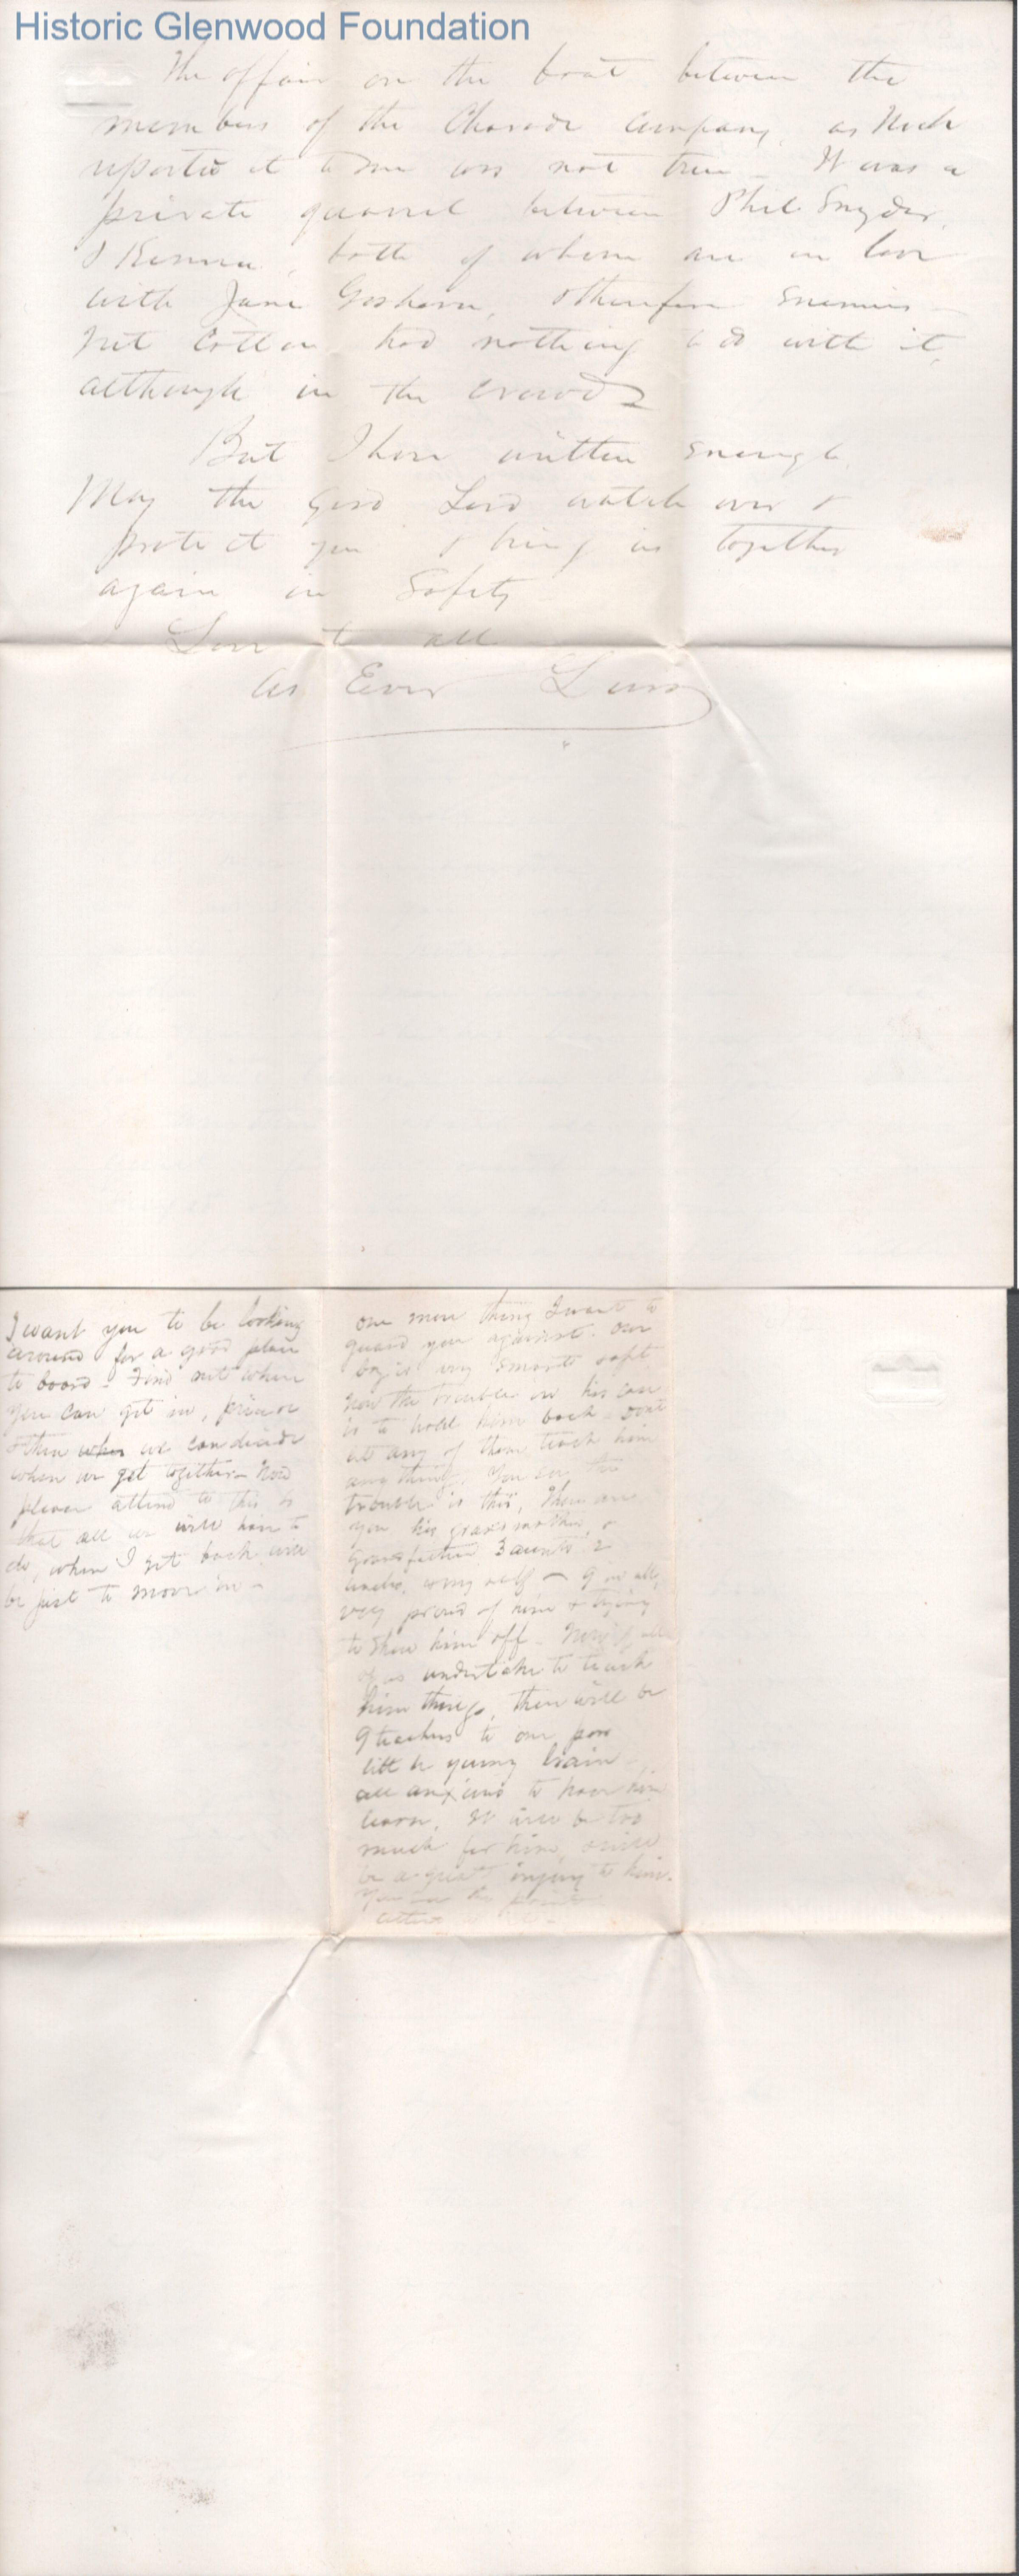 Historic Glenwood Foundation
The affair on the boat between the
members of the Charade Company, as
reported it to me was not true - It was a
private quarrel between Phil Snyder,
& , both of whom are in love
with Jane Goshorn, enemies -
Cotton had nothing to do with it,
although in the crowd
But I have written enough.
May the good Lord watch over &
protect you & bring us together
again in safety -
Love to all
As Ever
I want you to be looking
around for a good place
to board - Find out where
you can get in, price &
then when we can decide
when we get together - Now
please attend to this so
that all we will have to
do, when I get back will
be just to move in -
one more thing I want to
guard you against. Our
boy is very smart &
Now the trouble in his case
is to hold him back - Don't
let any of them teach him
any thing. You see the
trouble is this, There are
you his grandmother, &
Grandfather 3 aunts 2
uncles, & myself - 9 in all,
very proud of him & trying
to show him off - Now if all
of us undertake to teach
him things, there will be
9 teachers to one poor
little young brain -
all anxious to have him
learn. It will be too
much for him, & will
be a great injury to him.
You see the point